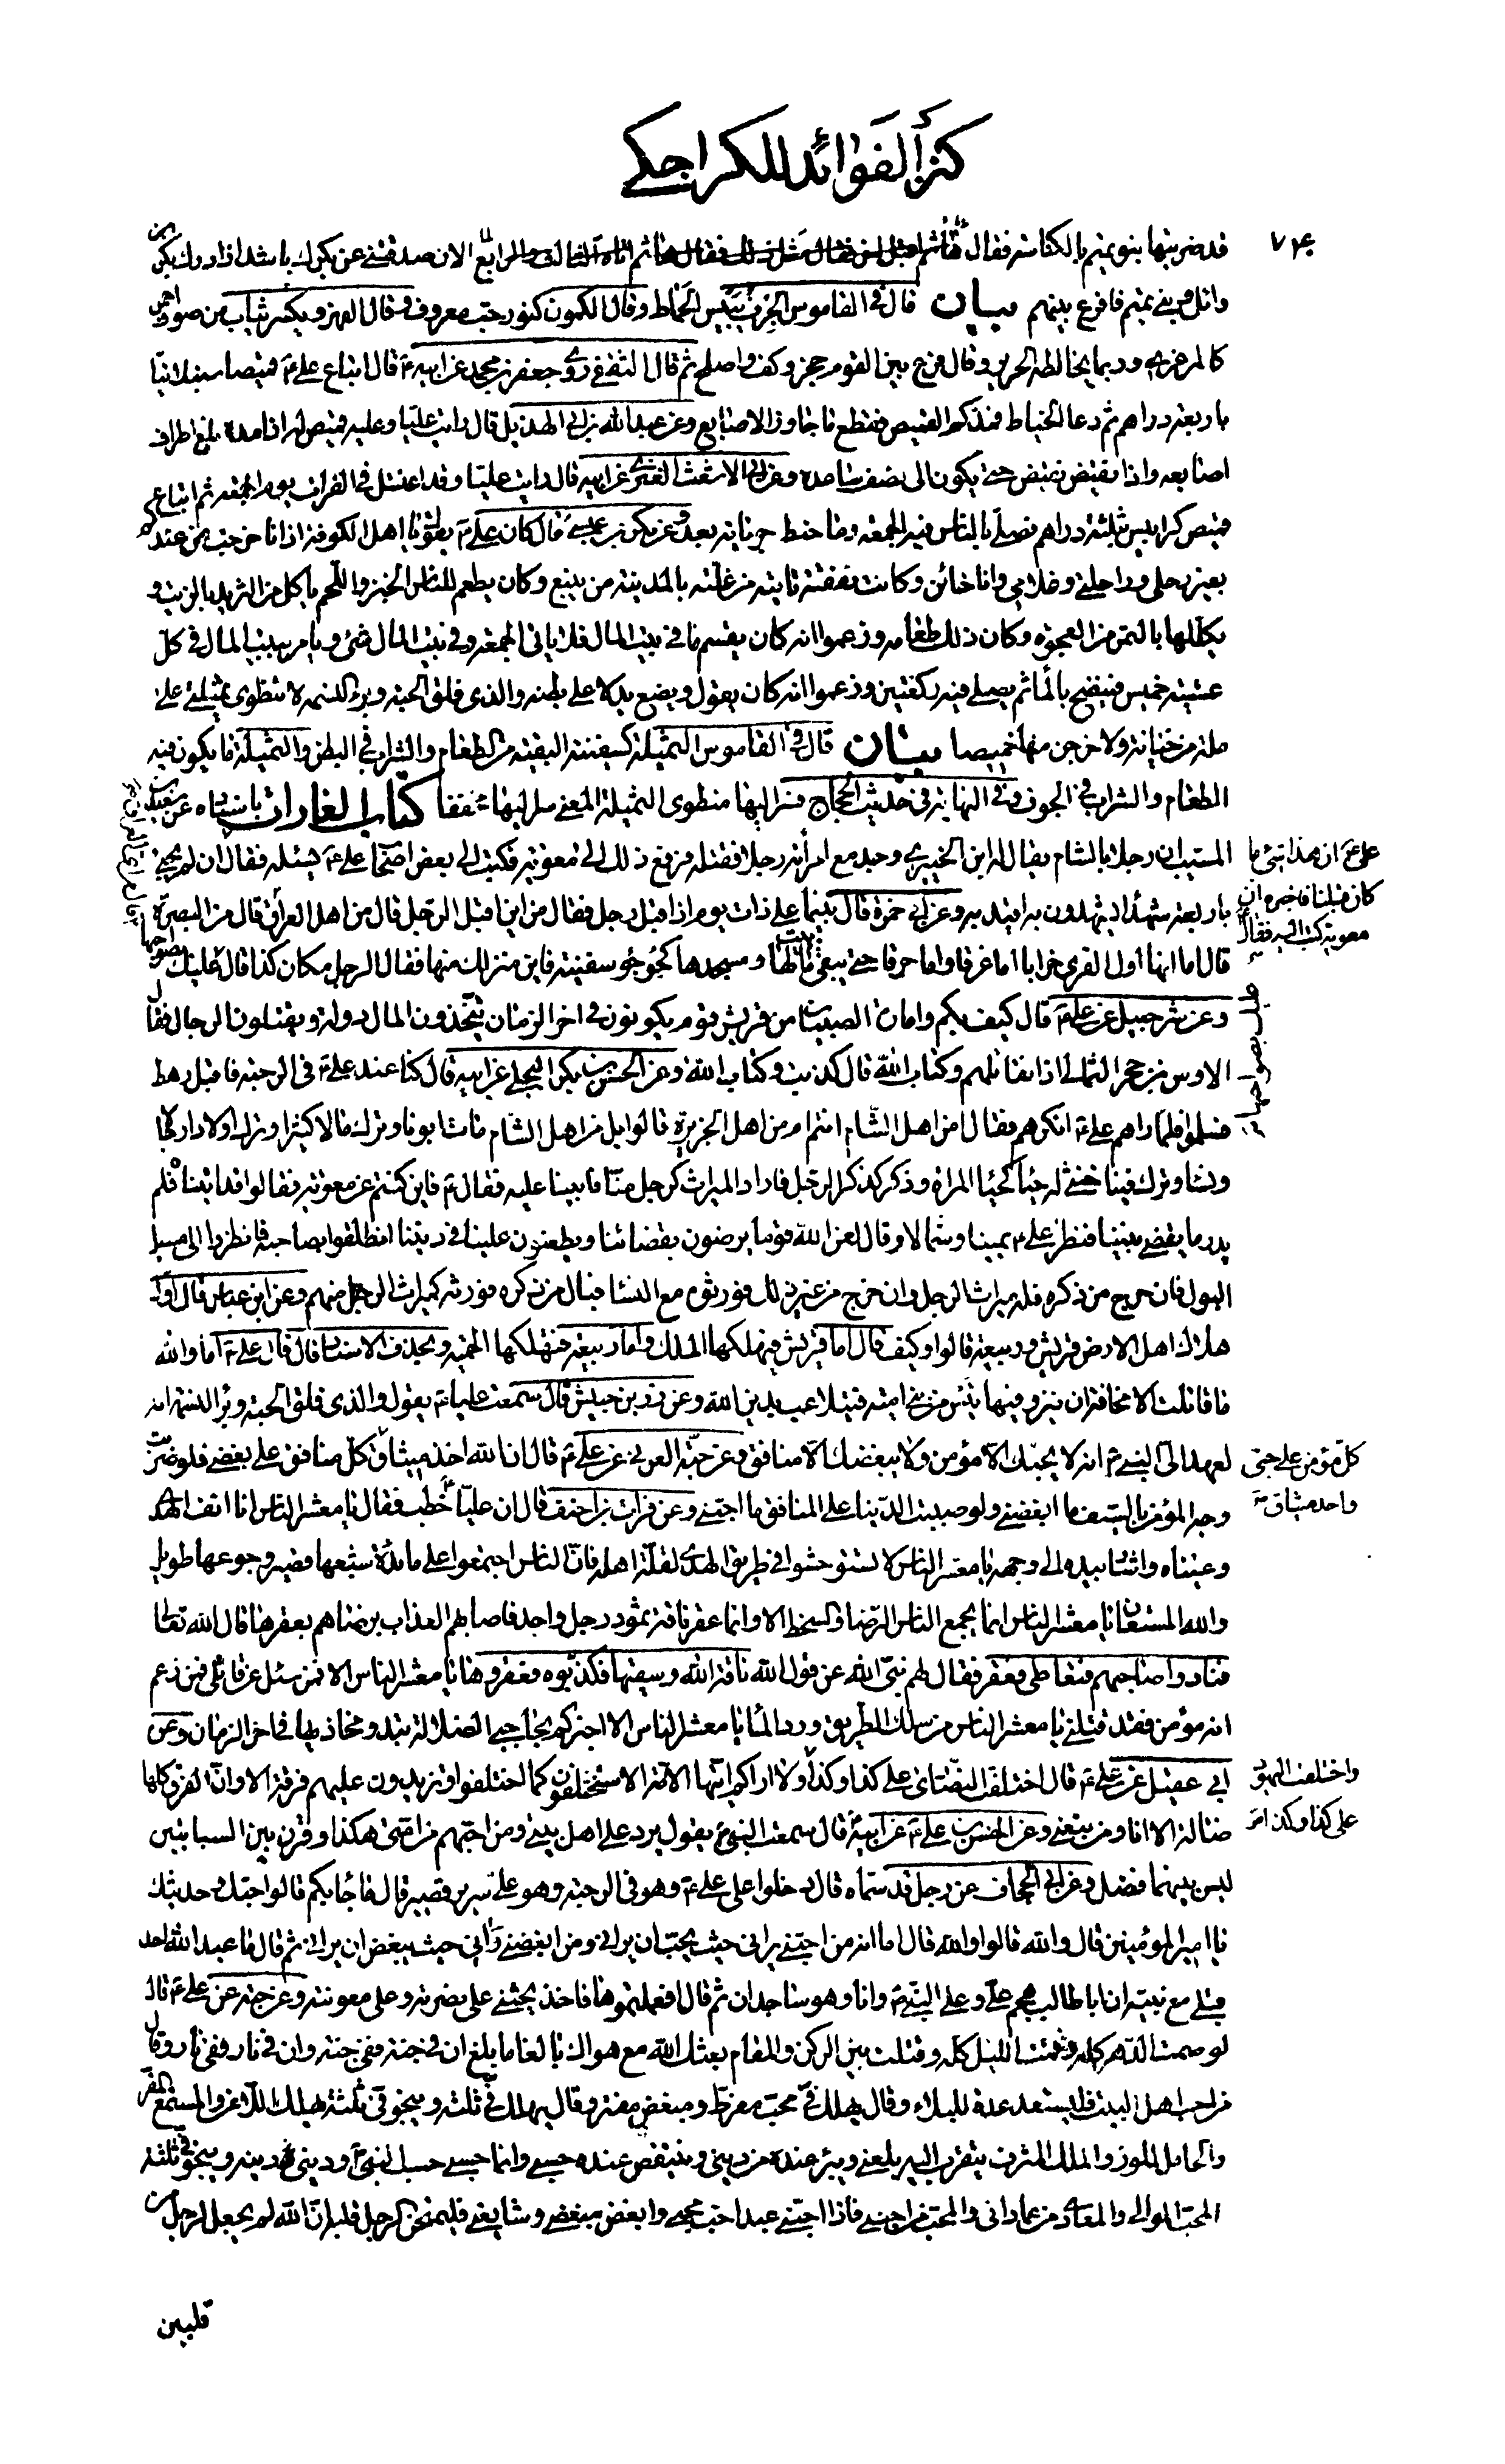 كنز الفوائد للكراجكي
٧٣٠
قد ضربتها بنو تميم بالكناسة فقال هاثم اقبل اخر فقال مثل ذلك فقال هاثم اتاه الثالث والرابع الان صدقتني عن بكرك يا شداد ادرك بكر بن
وائل وبني تميم فافرع بينهم بيان قال في القاموس وقال الكمون كتنور حب معروف وقال القهز ويكسر ثياب من صوف احمر
كالمرعزى وربما يخالطه الحرير وقال فرع بين القوم حجز وكف واصلح ثم قال الثقفي روى جعفر بن محمد عن ابيه ع قال ابتاع علي ع قميصا سنبلانيا
باربعة دراهم ثم دعا الخياط فمد كم القميص فقطع ما جاوز الاصابع وعن عبد الله بن ابي الهذيل قال رايت عليا وعليه قميص له اذا مده بلغ اطراف
اصابعه واذا تقبض تقبض حتى يكون الى نصف ساعده وعن ابي الاشعث العنزي عن ابيه قال رايت عليا وقد اغتسل في الفرات يوم الجمعة ثم ابتاع
قميص كرابيس بثلثة دراهم فصلى بالناس فيه الجمعة وما خيط جربانه بعد وعن بكر بن عيسى قال كان علي ع يقول يا اهل الكوفة اذا انا خرجت من عندكم
بغير رحلي وراحلتي وغلامي فانا خائن وكانت نفقته تاتيه من غلته بالمدينة من ينبع وكان يطعم الناس الخبز واللحم ياكل من الثريد بالزيت و
يكللها بالتمر من العجوة وكان ذلك طعامه وزعموا انه كان يقسم ما في بيت المال فلا ياتي الجمعة وفي بيت المال شئ ويامر ببيت المال في كل
عشية خميس فينضح بالماء ثم يصلي فيه ركعتين وزعموا انه كان يقول ويضع يده على بطنه والذي فلق الحبة وبرء النسمة لا تنطوي ثميلتي على
ملة من خيانة ولاخرجن منها خميصا بيان قال في القاموس الثميلة كسفينة البقية من الطعام والشراب في البطن والثميلة ما يكون فيه
الطعام والشراب في الجوف وفي النهاية في حديث الحجاج فسر اليها منطوي الثميلة المعنى سر اليها مخففا كتاب الغارات باسناده عن سعيد بن
المسيب ان رجلا بالشام يقال له ابن الخيبري وجد مع امرأته رجلا فقتله فرفع ذلك الى معوية فكتب الى بعض اصحاب علي ع يسئله فقال ان لم يجئ
علي ع ان هذا شئ ما
كان قبلنا فاخبره ان
معوية كتب اليه فقال
باربعة شهداء يشهدون به اقيد به وعن ابي حمزة قال بينما علي ذات يوم اذ اقبل رجل فقال من اين اقبل الرجل قال من اهل العراق قال من البصرة
قال اما انها اول القرى خرابا اما غرقا واما حرقا حتى يبقى بيت مالها ومسجدها كجؤجؤ سفينة فاين منزلك منها فقال الرجل مكان كذا قال عليك بضواحيها
وعن شرحبيل عن علي ع قال كيف بكم وامارة الصبيان من قريش قوم يكونون في اخر الزمان يتخذون المال دولة ويقتلون الرجال فقال
الاوس بن حجر الثمالي اذا نقاتلهم وكتاب الله قال كذبت وكتاب الله وعن الحسن بن بكر البجلي عن ابيه قال كنا عند علي ع في الرحبة فاقبل رهط
فسلموا فلما راهم علي ع انكرهم فقال امن اهل الشام انتم ام من اهل الجزيرة قالوا بل من اهل الشام مات ابونا وترك مالا كثيرا وترك اولادا رجالا
ونساء وترك فينا خنثى له حياء كحياء المراة وذكر كذكر الرجل فاراد الميراث كرجل منا فابينا عليه فقال ع فاين كنتم عن معوية فقالوا قد اتيناه فلم
يدر ما يقضي بيننا فنظر علي ع يمينا وشمالا وقال لعن الله قوما يرضون بقضائنا ويطعنون علينا في ديننا انطلقوا بصاحبكم فانظروا الى مسيل
البول فان خرج من ذكره فله ميراث الرجل وان خرج من غير ذلك فورثوه مع النساء فبال من ذكره فورثه كميراث الرجل منهم وعن ابن عباس قال اول
هلاك اهل الارض قريش وربيعة قالوا وكيف قال اما قريش فيهلكها الملك واما ربيعة فتهلكها الحمية وبحذف الاسناد قال قال علي ع اما والله
ما قاتلت الا مخافة ان ينزو فيها تيس من بني امية فيتلاعب بدين الله وعن زر بن حبيش قال سمعت عليا ع يقول والذي فلق الحبة وبرء النسمة انه
لعهد الي النبي ص انه لا يحبك الا مؤمن ولا يبغضك الا منافق وعن حبة العرني عن علي ع قال ان الله اخذ ميثاق كل منافق على بغضي فلو ضربت
كل مؤمن على حبي
واخذ ميثاق
وجه المؤمن بالسيف ما ابغضني ولو صببت الدنيا على المنافق ما احبني وعن فرات بن احنف قال ان عليا ع خطب فقال يا معشر الناس انا انف الهدى
وعيناه واشار بيده الى وجهه يا معشر الناس لا تستوحشوا في طريق الهدى لقلة اهله فان الناس اجتمعوا على مائدة شبعها قصير وجوعها طويل
والله المستعان يا معشر الناس انما يجمع الناس الرضا والسخط الا وانما عقر ناقة ثمود رجل واحد فاصابهم العذاب برضاهم بعقرها قال الله تعالى
فنادوا صاحبهم فتعاطى فعقر فقال لهم نبي الله عن قول الله ناقة الله وسقياها فكذبوه فعقروها يا معشر الناس الا فمن سئل عن قاتلي فمن زعم
انه مؤمن فقد قتلني يا معشر الناس من سلك الطريق ورد الماء يا معشر الناس الا اخبركم بحاجبي الضلالة تبدو مخازيها في اخر الزمان وعن
ابي عقيل عن علي ع قال اختلفت النصارى على كذا وكذا ولا اراكم ايتها الامة الا ستختلفون كما اختلفوا وتزيدون عليهم فرقة الا وان الفرق كلها
واختلفت اليهود
على كذا وكذا
ضالة الا انا ومن تبعني وعن الحسن بن علي ع عن ابيه قال سمعت النبي ص يقول يرد علي اهل بيتي ومن احبهم من امتي هكذا وقرن بين السبابتين
ليس بينهما فضل وعن ابي الجحاف عن رجل قد سماه قال دخلوا على علي ع وهو في الرحبة وهو على سرير قصير قال ما جاء بكم قالوا حبك وحديثك
يا امير المؤمنين قال والله قالوا والله قال اما انه من احبني يراني حيث يحب ان يراني ومن ابغضني راني حيث يبغض ان يراني ثم قال ما عبد الله احد
قبلي مع نبيه ان ابا طالب هجم علي وعلى النبي ص وانا وهو ساجدان ثم قال افعلتموها فاخذ يحثني على نصرته وعلى معونته وعن حبة عن علي ع قال
لو صمت الدهر كله وقمت الليل كله وقتلت بين الركن والمقام بعثك الله مع هواك بالغا ما بلغ ان في جنة ففي جنة وان في نار ففي نار وقال
من احب اهل البيت فليستعد عدة للبلاء وقال يهلك في محب مفرط ومبغض مفتر وقال يهلك في ثلثة وينجو في ثلثة يهلك اللاعن والمستمع المقر
والحامل للوزر والملك المترف يتقرب اليه بلعني ويبرء عنده من ديني وينتقص عنده حسبي وانما حسبي حسب النبي ص وديني دينه وينجو في ثلثة
المحب الموالي والمعادي من عاداني والمحب من احبني فاذا احبني عبد احب محبي وابغض مبغضي وشايعني فليمتحن كرجل قلبه ان الله لم يجعل لرجل من
قلبين